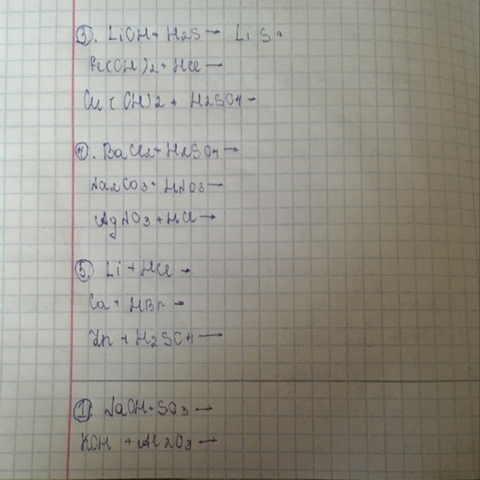 ③. LiOH + H2S → LiS
Fe(OH)2 + HCl →
Cu(OH)2 + H2SO4 →
④. BaCl2 + H2SO4 →
Na2CO3 + HNO3 →
AgNO3 + HCl →
⑤. Li + HCl →
Ca + HBr →
Zn + H2SO4 →
①. NaOH + SO3 →
KOH + Al2O3 →